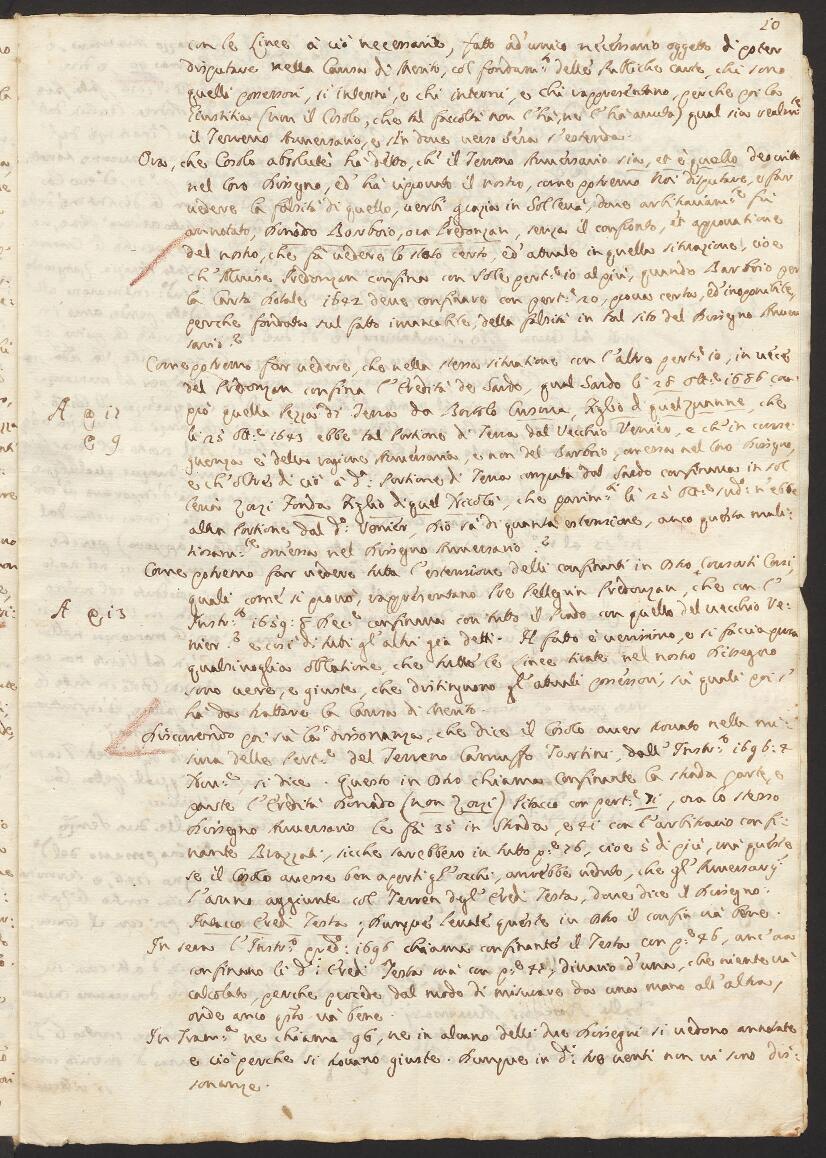 20
con le Linee à ciò necessarie, fatto ad'unico necessario oggetto di poter
disputare nella Causa di Merito, col fondam.to delle publiche carte, chi sono
quelli possessori, si interni, e chi interni, e chi rappresentano, perche poi la
Giustitia (non il Cosolo, che tal facoltà non l'hà, ne l'hà avuta) qual sia realm.te
il Terreno Aversario, e sin dove verso sera s'estenda.
Ora, che Cosolo absolutè hà detto, ch'il Terreno Aversario sia, et è quello descritto
nel loro Dissegno, ed'hà riprovato il nostro, come potremo Noi disputare, e far
vedere la falsità di quello, verbi grazia in Sol levà, dove arbitrariam.te fù
annotato, Donado Barborio, ora Predonzan, senza il confronto, et approvatione
del nostro, che fà vedere lo stato certo, ed'attuale in quella situazione, cioè
ch'Alvise Predonzan confina con sole pert.e 10 al più, quando Barborio per
la Carta Dotale 1642 deve confinare con pert.e 20, prova certa, ed'inoponibile,
perche fondata sul fatto immutabile, della falsità in tal sito del Dissegno Aver-
sario.
Come potremo far vedere, che nella stessa situatione con l'altre pert.e 10, in vece
del Predonzan confina l'Eredità de Sardo, qual Sardo li 28 Ott.e 1686 com-
prò quella Pezza di Terra da Bortolo, Figlio di quel Zuanne, che
A p 12
li 25 Ott.e 1643 ebbe tal Portione di Terra dal Vecchio Venier, e ch'in conse-
e 9
guenza è della ragione Aversaria, e non del Barborio, ancessa nel loro Dissegno,
e ch'oltre di ciò à d.a Portione di Terra comprata dal Sardo confinava in sol
levà Zorzi Fonda Figlio di quel Nicolò, che parim.te li 25 Ott.e sud.o n'ebbe
altra Portione dal d.o Venier, Dio sà di quanta estensione, anco questa mali-
tiosam.te omessa nel Dissegno Aversario.
Come potremo far vedere tutta l'estensione delli confinanti in Ostro, Consorti Corsi,
quali come si provò, rappresentano Pre Pellegrin Predonzan, che con l'
A p 13
Instr.to 1659: 8 Dec.e confinava con tutto il Prado con quello del vecchio Ve-
nier, e così di tutti gl'altri già detti. Il fatto è verissimo, e si faccia pura
qualsivoglia oblatione che tutte le Linee tirate nel nostro Dissegno
sono vere, e giuste, che distinguono gl'attuali possessori, sù quali poi s'
hà da trattare la Causa di Merito.
Discorrendo poi sù la dissonanza, che dice il Cosolo aver trovato nella mi-
sura delle Pert.e del Terreno Camuffo Tartini, dall'Instr.o 1696: 4
Nov.e, si dice. Questo in Ostro chiama confinante la strada parte, e
parte l'Eredità Donado (non Zorzi) Petacco con pert.e 71, ora lo stesso
Dissegno Aversario le fà 35 in Strada, e 41 con l'arbitrario confi-
nante Brazzati, sicche sarebbero in tutto p.e 76, cioè 5 di più, mà queste
se il Cosolo avesse ben aperti gl'occhi, avrebbe veduto, che gl'Aversarij
l'anno aggiunte col Terren degl'Eredi Testa, dove dice il Dissegno.
Intacco Eredi Testa; Dunque levate queste in Ostro il confin và bene.
In sera l'Instr.o pred.o: 1696 chiama confinante il Testa con p.e 46, anc'ora
confinano li d.i Eredi Testa mà con p.e 45, divario d'una, che niente và
calcolato, perche procede dal modo di misurare da una mano all'altra,
onde anco q.sto và bene.
In Tram.a ne chiama 96, ne in alcuno delli due Dissegni si vedono annotate
e ciò perche si trovano giuste. Dunque in d.i tre venti non vi sono dis-
sonanze.